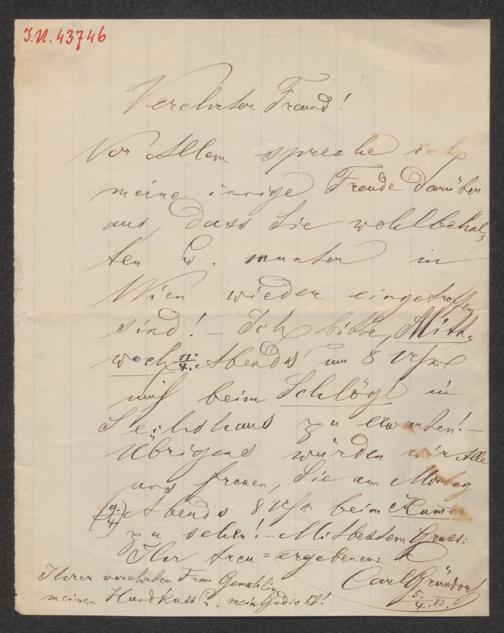 I.N. 43746
Verehrter Freund!
Vor Allem spreche ich
meine innige Freude darüber
aus, dass Sie wohlbehal-
ten u. munter in
Wien wieder eingetroffen
sind! – Ich bitte, Mitt-
woch 11./4. Abends um 8 Uhr
mich beim Schlögl in
zu erwarten! –
Übrigens würden wir Alle
uns freuen, Sie am Montag
(9./4.) Abends 8 Uhr beim
zu sehen! – Mit bestem Gruss:
Ihr treu-ergebener:
Carl Gründorf
5./4. 83.
Ihrer verehrten Frau Gemahlin
meinen Handkuss u. mein Gedicht!